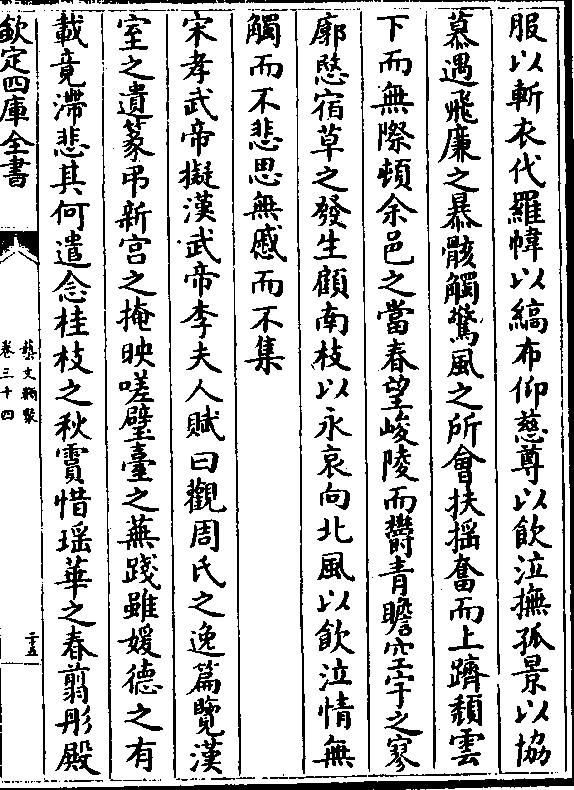 服以斬衣代羅幃以縞布仰慈尊以飲泣撫孤景以協
慕遇飛廉之暴骸觸驚風之所會扶搖奮而上躋頹雲
下而無際頓余邑之當春望峻陵而鬱青瞻空宇之寥
廓愍宿草之發生顧南枝以永哀向北風以飲泣情無
觸而不悲思無慼而不集
宋孝武帝擬漢武帝李夫人賦曰觀周氏之逸篇覽漢
室之遺篆弔新宫之掩映嗟璧臺之蕪踐雖媛德之有
載竟滯悲其何遣念桂枝之秋霣惜瑶華之春翦彤殿
欽定四庫全書
藝文類聚
卷三十四
二十五